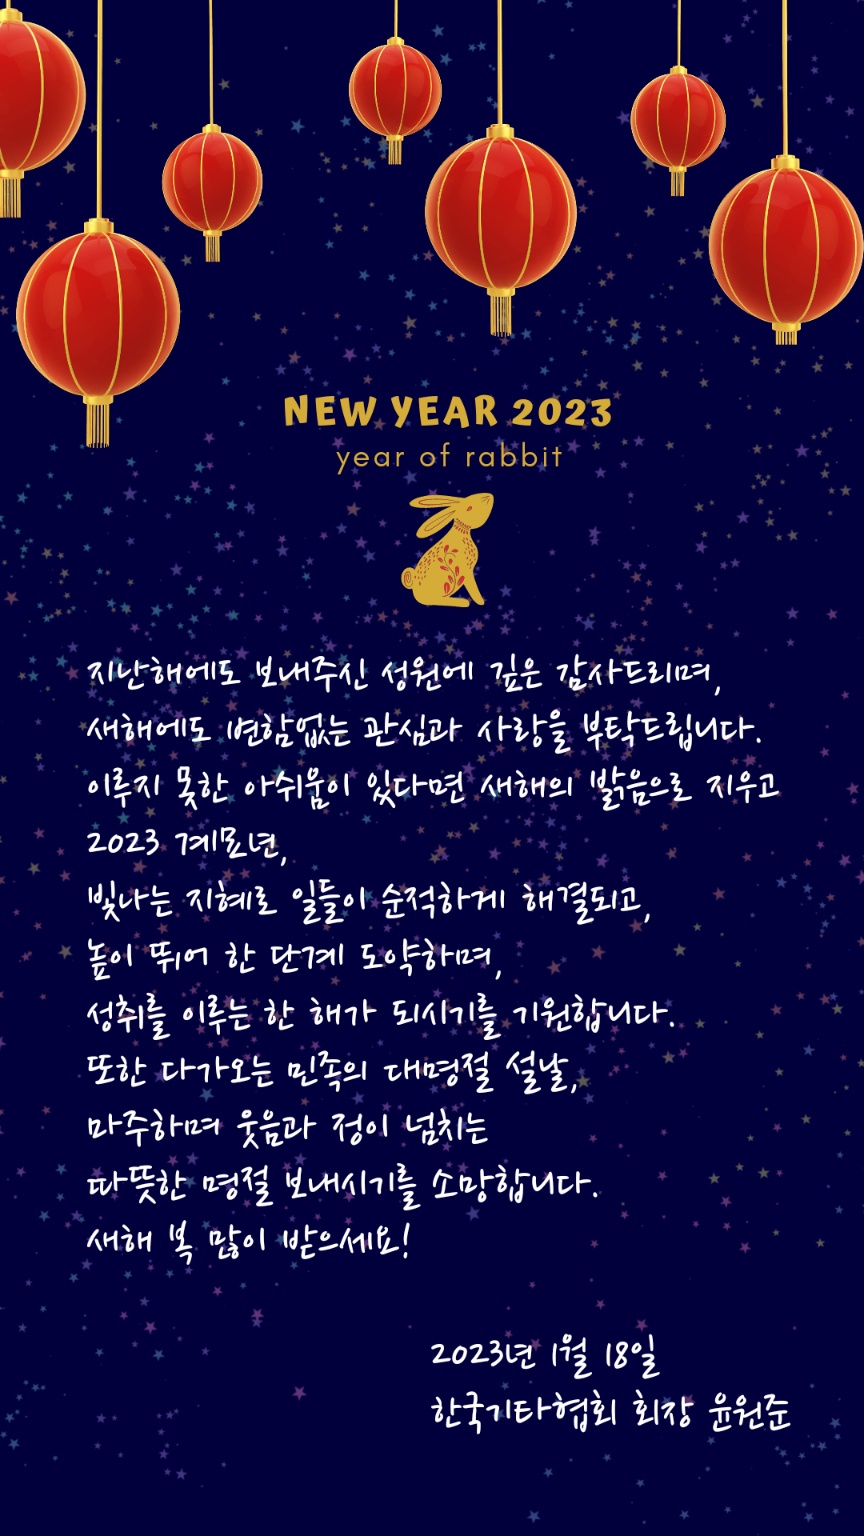 NEW YEAR 2023
year of rabbit
지난해에도 보내주신 성원에 깊은 감사드리며,
새해에도 변함없는 관심과 사랑을 부탁드립니다.
이루지 못한 아쉬움이 있다면 새해의 밝음으로 지우고
2023 계묘년,
빛나는 지혜로 일들이 순적하게 해결되고,
높이 뛰어 한 단계 도약하며,
성취를 이루는 한 해가 되시기를 기원합니다.
또한 다가오는 민족의 대명절 설날,
마주하며 웃음과 정이 넘치는
따뜻한 명절 보내시기를 소망합니다.
새해 복 많이 받으세요!
2023년 1월 18일
한국기타협회 회장 윤원준